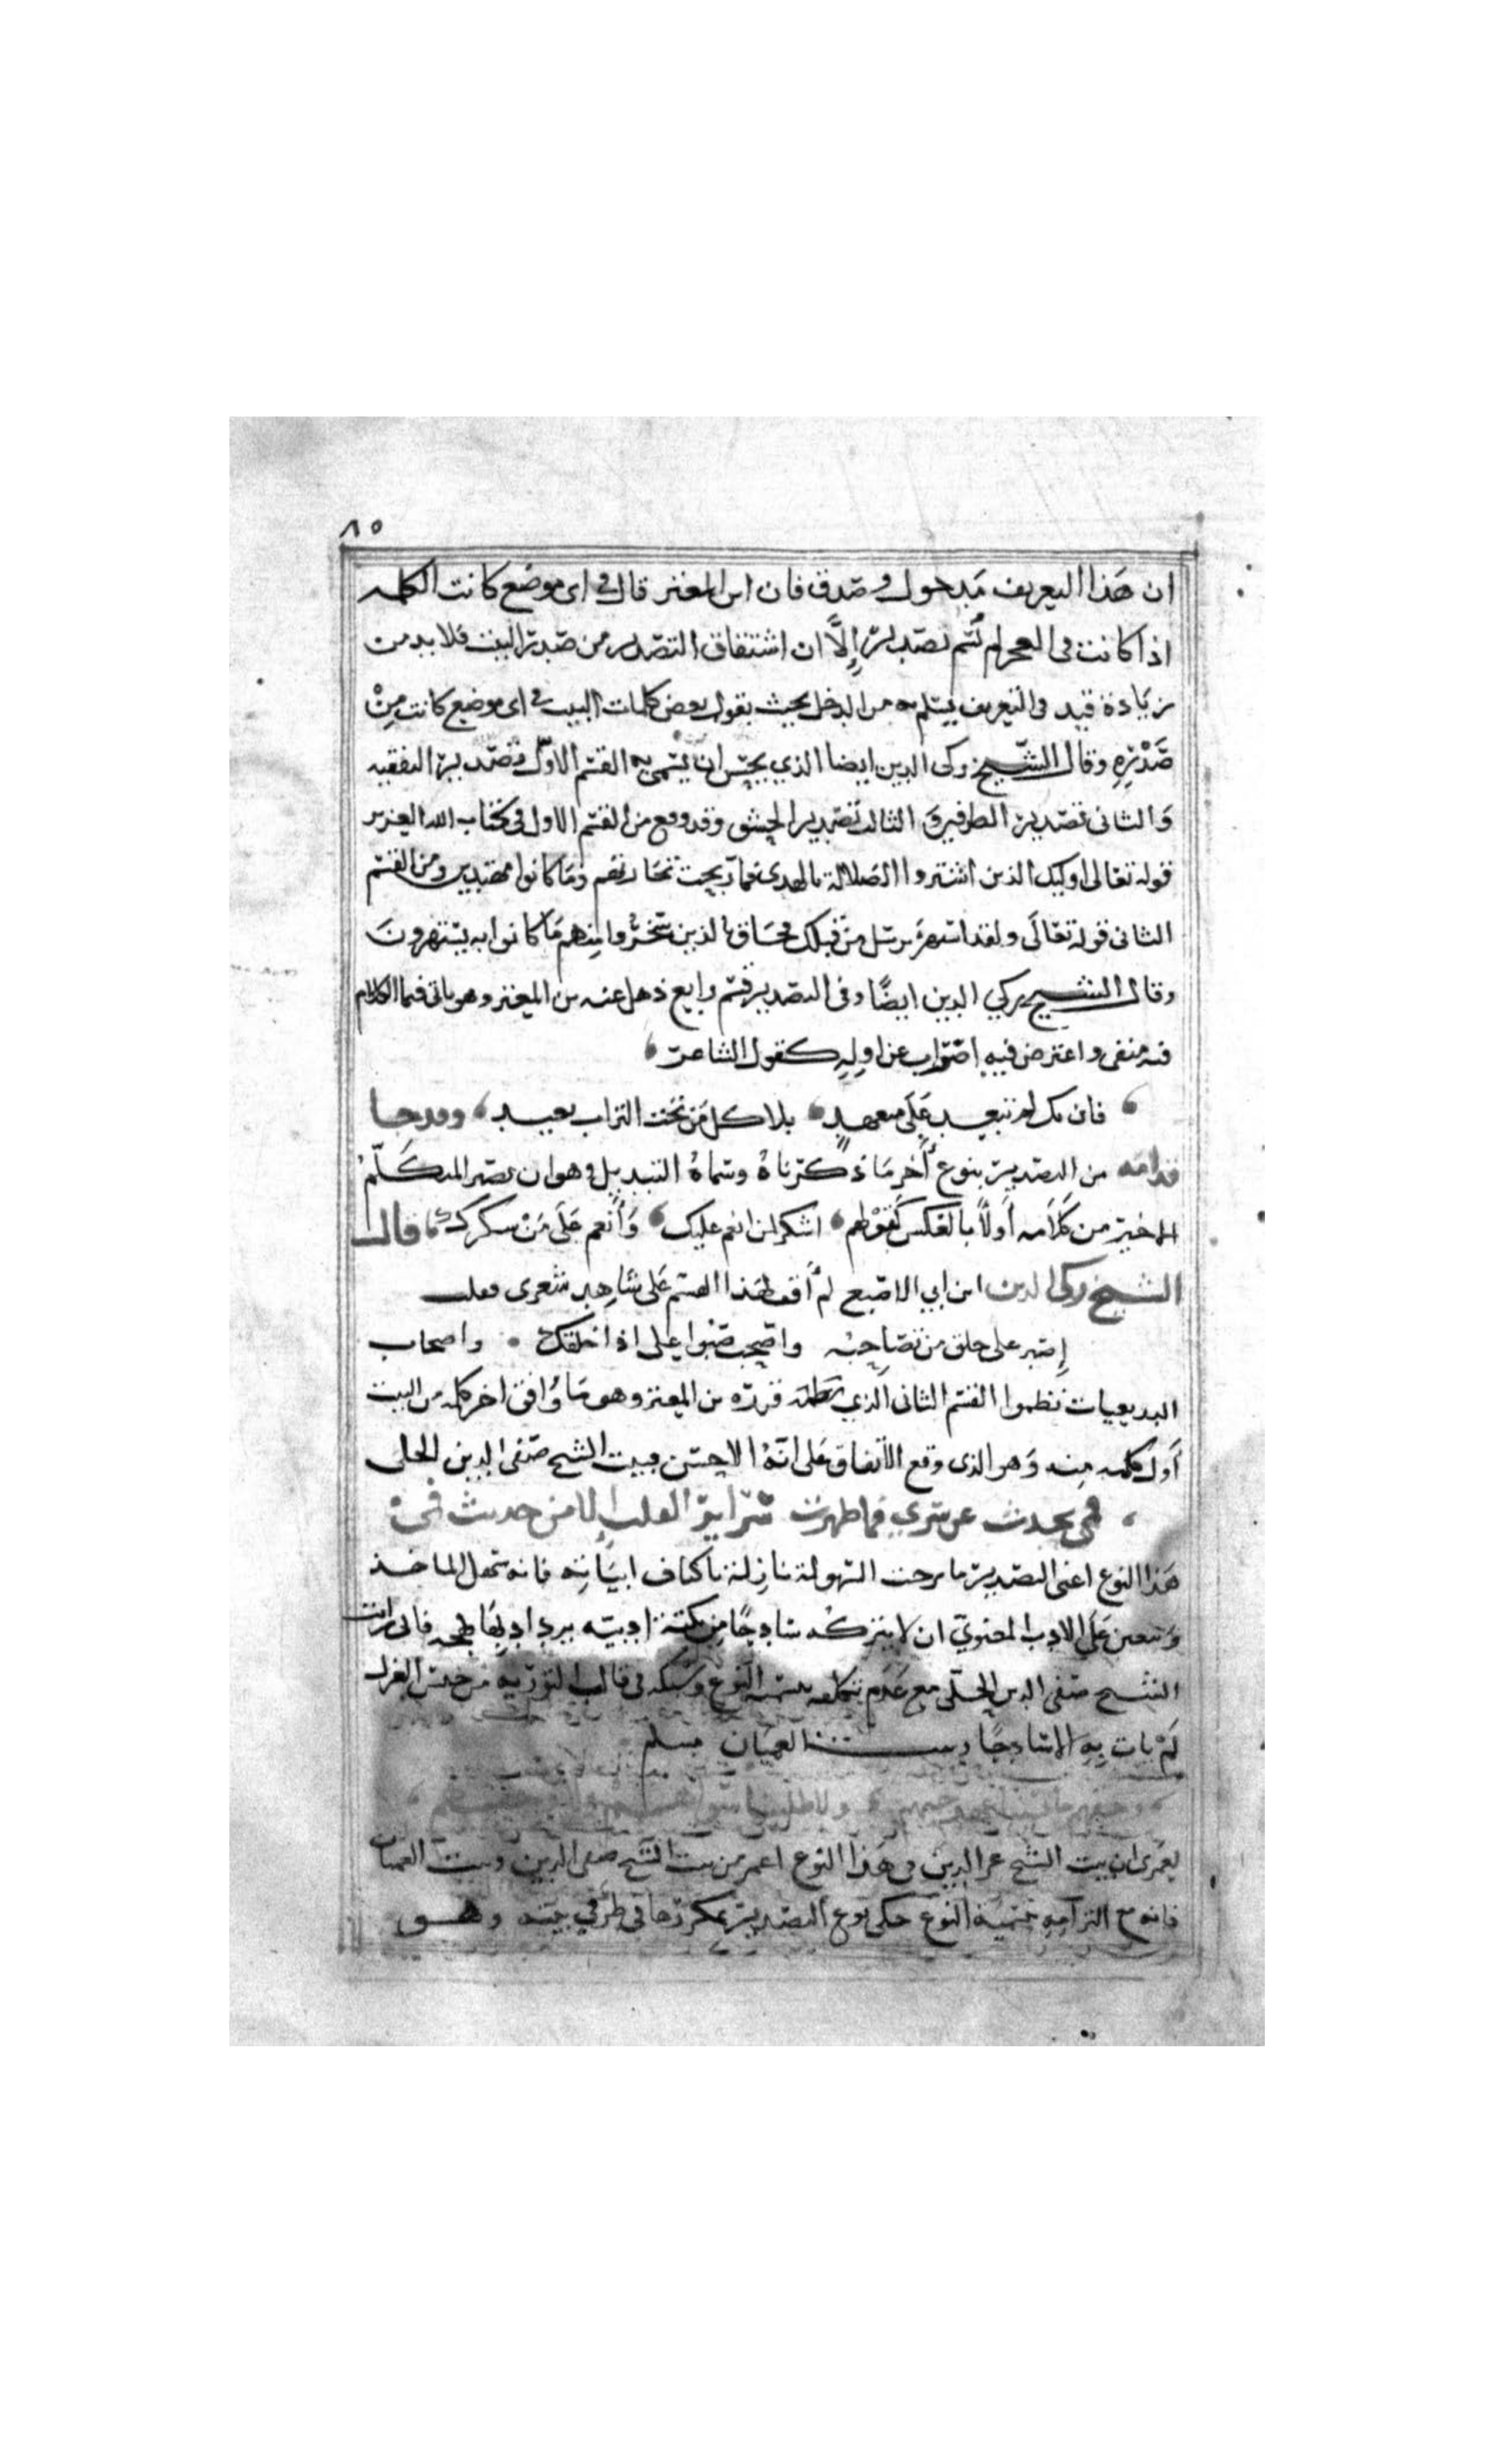 ٨٥
ان هذا التعريف مدخول وصدق فان ابن المعتز قال في اى موضع كانت الكلمه
اذا كانت فى العجز لم تسم تصديرا إلا ان اشتقاق التصدير من صدر البيت فلا بد من
زيادة قيد فى التعريف يسلم به من الدخل بحيث يقول بعض كلمات البيت في اى موضع كانت من
صدره وقال الشيخ زكى الدين ايضا الذي يحسن ان يسمى به القسم الاول تصدير التقفيه
والثانى تصدير الطرفين والثالث تصدير الحشو وقد وقع من القسم الاول فى كتاب الله العزيز
قوله تعالى اوليك الذين اشتروا الضلالة بالهدى فما ربحت تجارتهم وما كانوا مهتدين ومن القسم
الثانى قوله تعالى ولقد استهزئ برسل من قبلك فحاق بالذين سخروا منهم ما كانوا به يستهزون
وقال الشيخ زكي الدين ايضا وفى التصدير قسم رابع ذهل عنه ابن المعتز وهو ياتى فيما الكلام
فيه منفى واعترض فيه اضراب عن اوله كقول الشاعر
فان يك لم تبعد على متعهد بلا كل من تحت التراب بعيد وقد جا
قدامه من التصدير بنوع اخر ما ذكرناه وسماه التبديل وهو ان يصير المتكلم
الاخير من كلامه أولا بالعكس كقولهم اشكر لمن انعم عليك وأنعم على من شكرك قال
الشيخ زكى الدين ابن ابي الاصبع لم أقف لهذا القسم على شاهد شعرى فقلت
إصبر على خلق من تصاحبه واصحب صبورا على اذا خلقك واصحاب
البديعيات نظموا القسم الثانى الذي قرره ابن المعتز وهو ما وافق اخر كلمه من البيت
أول كلمه منه وهو الذى وقع الاتفاق على انه الاحسن فبيت الشيخ صفى الدين الحلى
فمى يحدث عن سري فما ظهرت سراير القلب إلا من حديث فمى
هذا النوع اعنى التصدير ما برحت السهولة نازلة باكناف ابياته فانه سهل الماخذ
ويتعين على الاديب المعنوي ان لا يتركه ساذجا من نكتة ادبيه يزداد بها بهجه فانى رايت
الشيخ صفى الدين الحلى مع عدم تكلفه بتسميه النوع وسبكه فى قالب التوريه من جنس الغزل
لم يات به إلا ساذجا وبيت العميان مسلم
لعمرى ان بيت الشيخ عز الدين فى هذا النوع اعمر من بيت الشيخ صفى الدين وبيت العميان
فانه مع التزامه بتسمية النوع حكى نوع التصدير مكررها فى طرفي بيته وهو